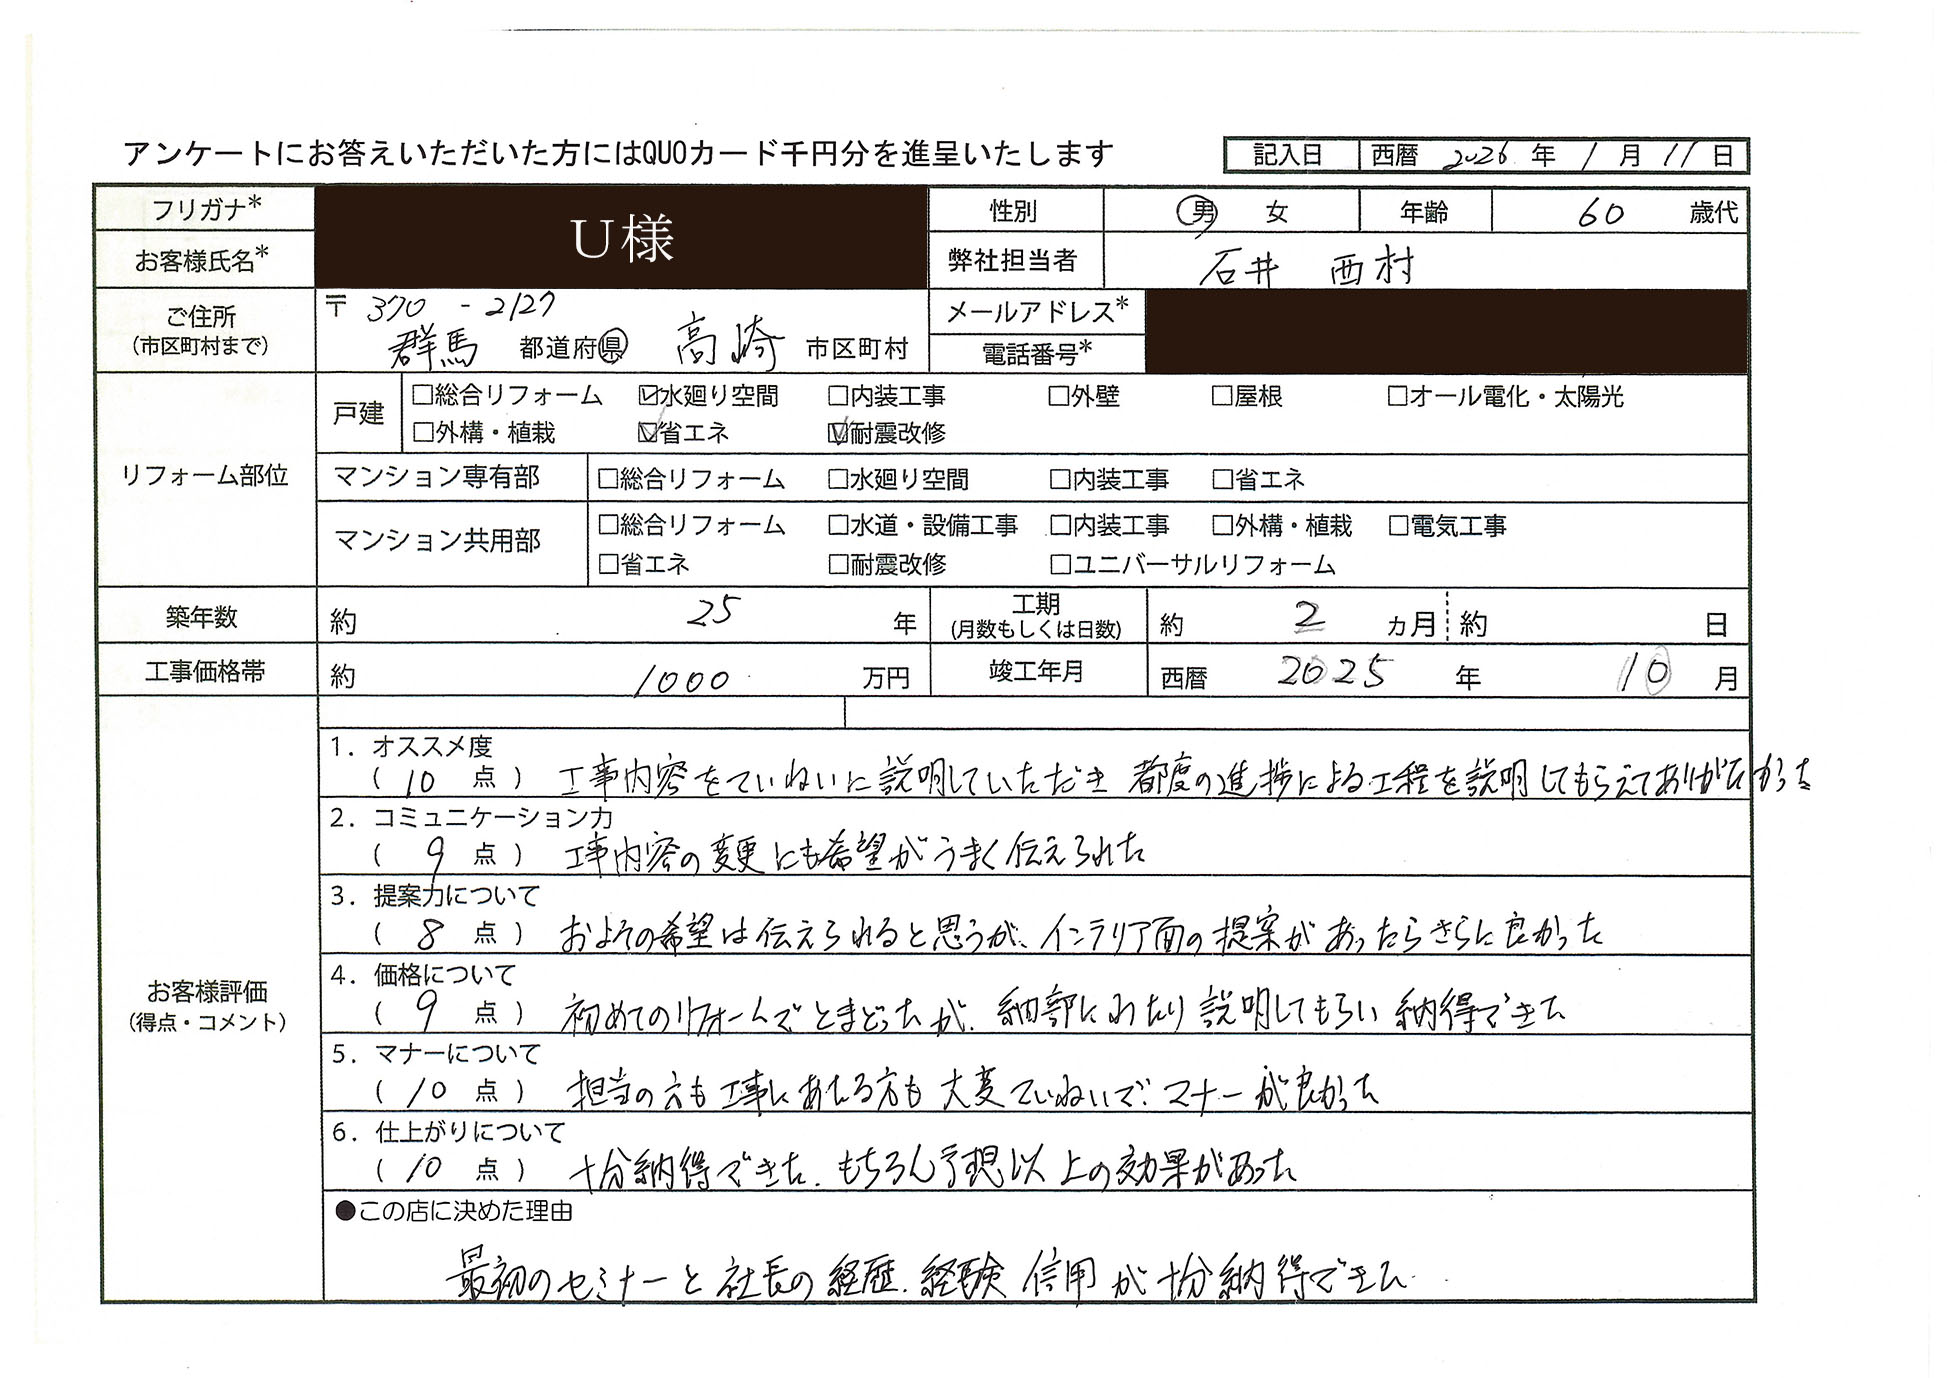 アンケートにお答えいただいた方にはQUOカード千円分を進呈いたします
記入日 西暦 2026 年 1 月 11 日
フリガナ* U様 性別 男 女 年齢 60 歳代
お客様氏名* 弊社担当者 石井 西村
ご住所 (市区町村まで) 〒 370 - 2127 メールアドレス*
群馬 都道府県 高崎 市区町村 電話番号*
リフォーム部位
戸建 □総合リフォーム ☑水廻り空間 □内装工事 □外壁 □屋根 □オール電化・太陽光
□外構・植栽 ☑省エネ ☑耐震改修
マンション専有部 □総合リフォーム □水廻り空間 □内装工事 □省エネ
マンション共用部 □総合リフォーム □水道・設備工事 □内装工事 □外構・植栽 □電気工事
□省エネ □耐震改修 □ユニバーサルリフォーム
築年数 約 25 年 工期 (月数もしくは日数) 約 2 ヵ月 約 日
工事価格帯 約 1000 万円 竣工年月 西暦 2025 年 10 月
お客様評価
(得点・コメント)
1. オススメ度
( 10 点 ) 工事内容をていねいに説明していただき 都度の進捗による工程を説明してもらえてありがたかった
2. コミュニケーション力
( 9 点 ) 工事内容の変更にも希望がうまく伝えられた
3. 提案力について
( 8 点 ) およその希望は伝えられると思うが、インテリア面の提案があったらさらに良かった
4. 価格について
( 9 点 ) 初めてのリフォームでとまどったが、細部にわたり説明してもらい納得できた
5. マナーについて
( 10 点 ) 担当の方も工事にあたる方も大変ていねいで、マナーが良かった
6. 仕上がりについて
( 10 点 ) 十分納得できた、もちろん予想以上の効果があった
●この店に決めた理由
最初のセミナーと社長の経歴、経験 信用が十分納得できた